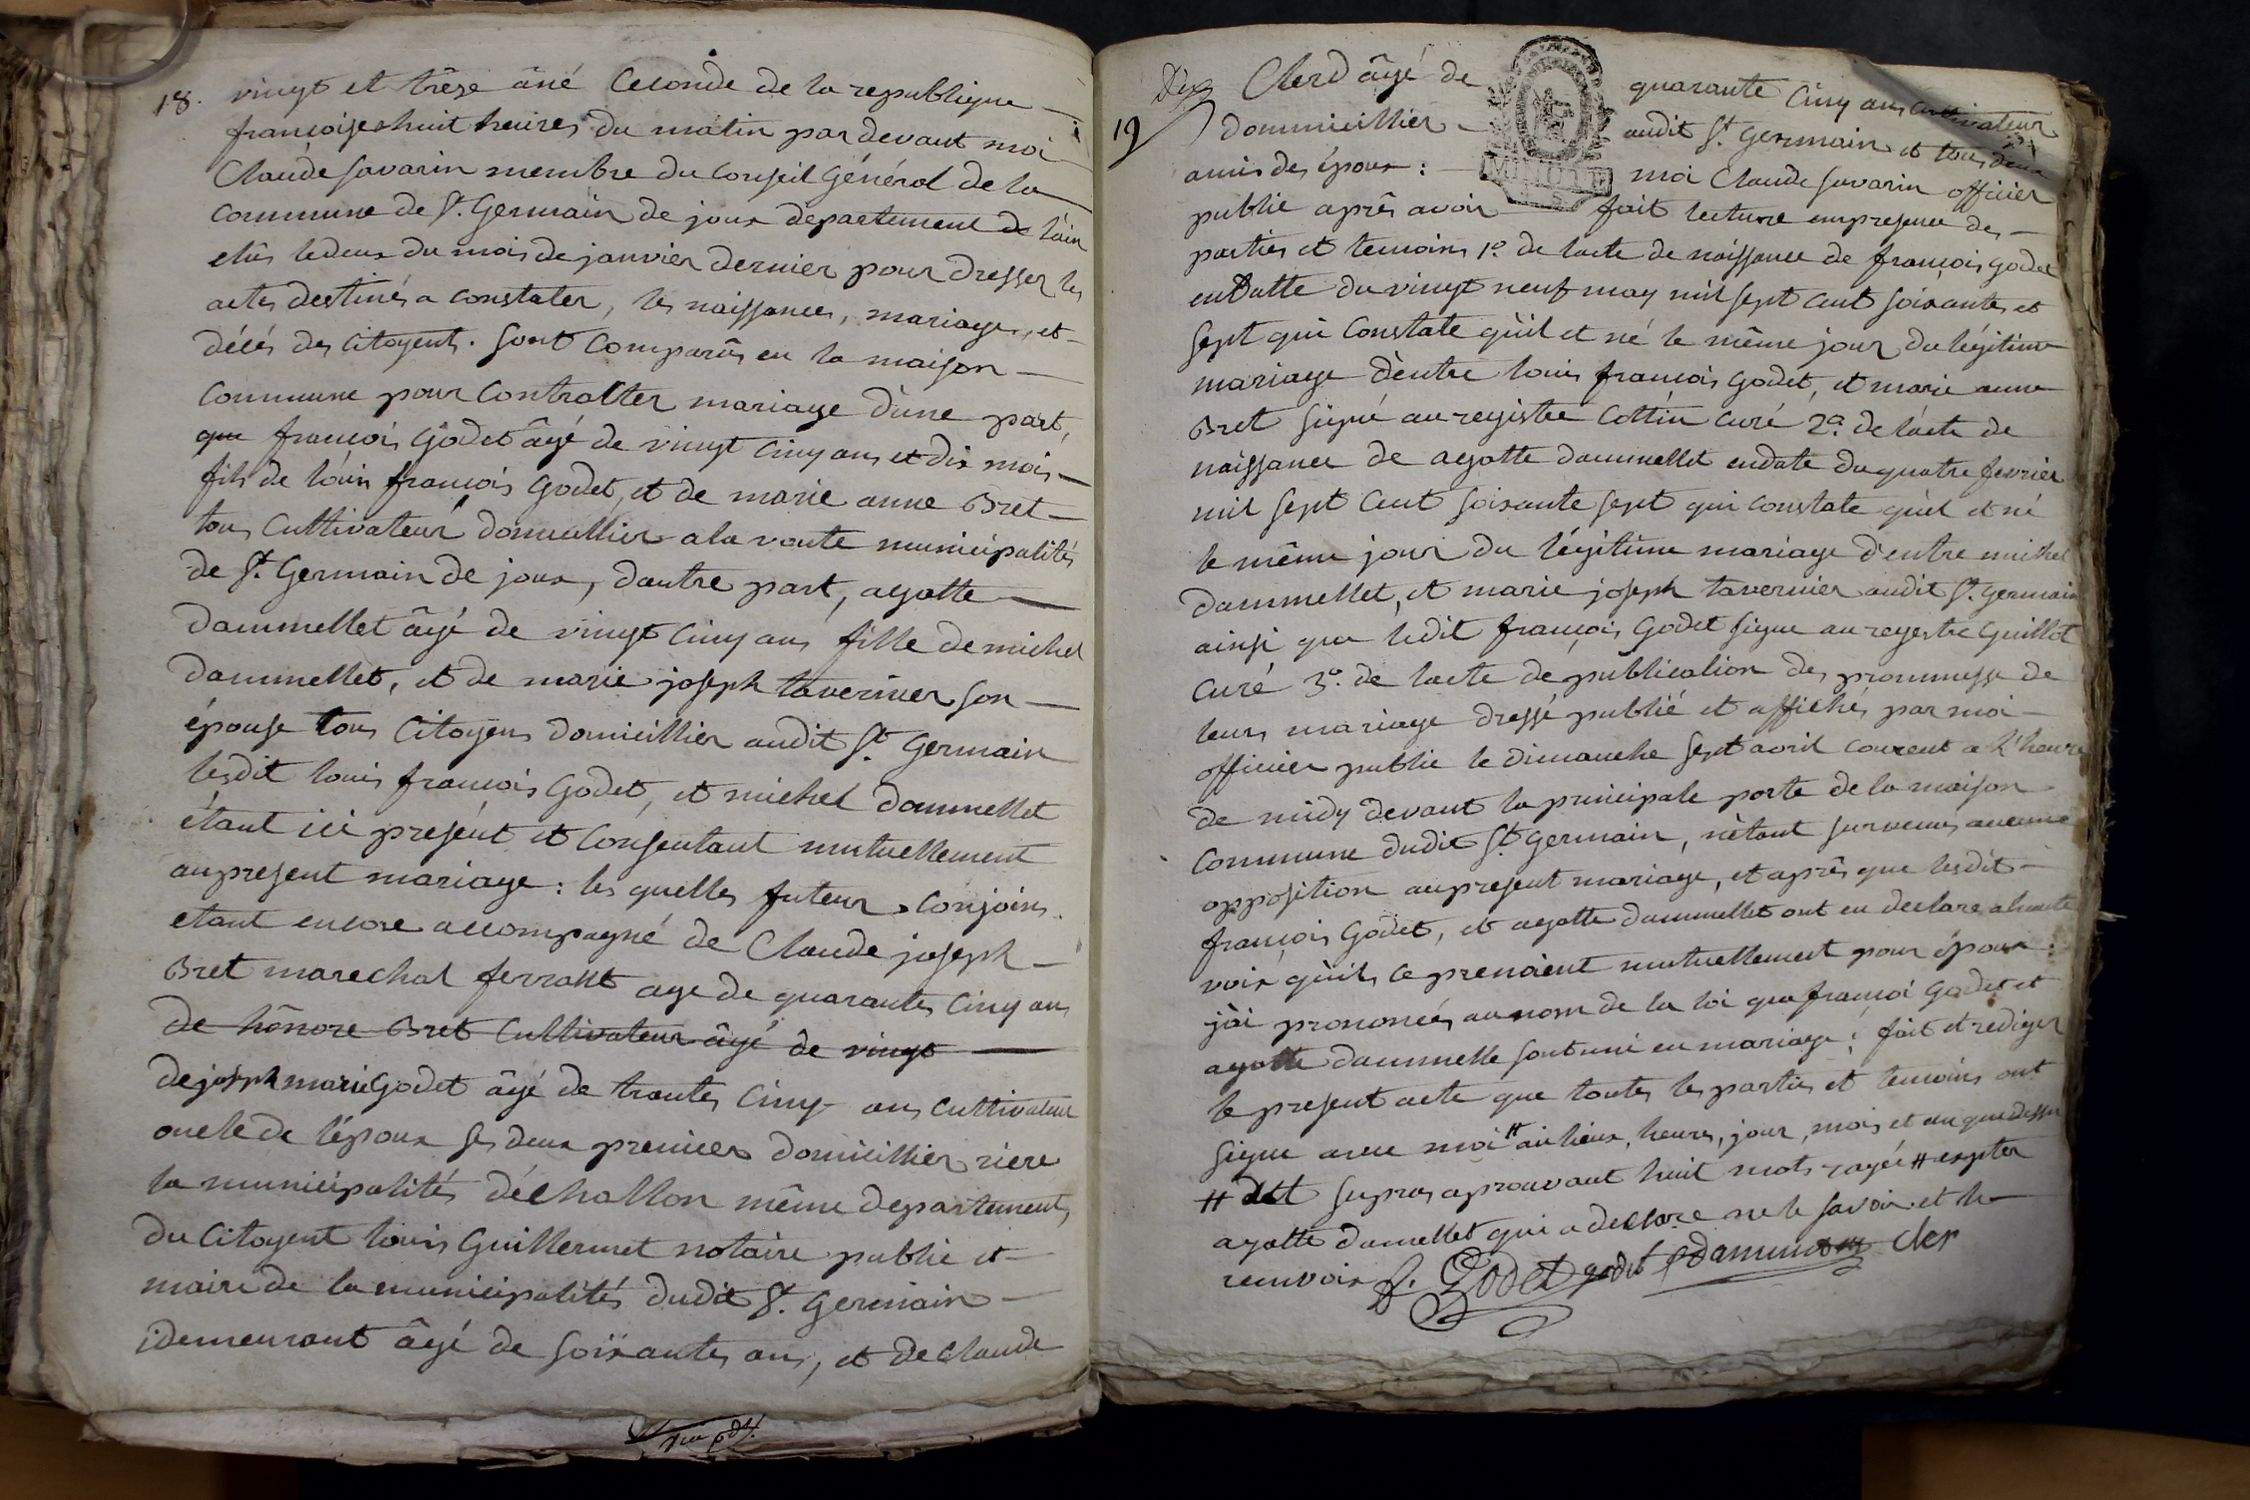 18. vingt et trêze âné Ceconde de la republique
françoise huit heures du matin par devant moi
Claude Savarin membre du Conseil Général de la
Commune de St. Germain de joux departement de l'ain
elûs ledeux du mois de janvier dernier pour dresser les
actes destinés a constater, les naissances, mariages, et
décés des Citoyent. sont Comparûs en la maison
Commune pour Contracter mariage d'une part,
que françois Godet âgé de vingt Cinq ans et dix mois
fils de loüis françois Godet, et de marie anne Bret
tous Cultivateur domicillier a la voute municipalités
de St. Germain de joux, dautre part, agatte
dammellet âgé de vingt Cinq ans fille de michel
dammellet, et de marie joseph tavernier son
épouse tous Citoyens domicillier audit St. Germain
lesdit louis françois Godet, et michel dammellet
étant ici présent et Consentant mutuellement
au present mariage : les quelles futeur Conjoins
etant encore accompagné de Claude joseph
Bret marechal ferrant age de quarantes Cinq ans
de hônore Bret Cultivateur âgé de vingt
de joseph marie Godet âgé de trantes Cinq ans Cultivateur
oncle de l'époux ses deux premiers domicillier riere
la municipalités déchallon même departement,
du Citoyent louis Guillermet notaire public et
maire de la municipalités dudit St. Germain
i demeurant âgé de soixantes ans, et de Claude
Dix
19
Clerd âgé de quarante Cinq ans Cultivateur
dommicillier audit St. Germain et tous deux
amis des époux : moi Claude Savarin officier
public aprês avoir fait lecture empresence des
parties et temoins 1º. de lacte de naissance de françois Godet
endatte du vingt neuf may mil sept cent soixantes et
sept qui Constate qu'il et né le même jour du légitime
mariage d'entre louis françois Godet, et marie anne
Bret signé au registre Cottin Curé 2º. de l'acte de
naissance de agatte dammellet endate du quatre fevrier
mil sept Cent soixante sept qui constate qu'el et né
le même jour du légitime mariage d'entre michel
dammellet, et marie joseph tavernier audit St. Germain
ainsi que ledit françois Godet signe au regestre Guillot
Curé 3º. de lacte de publication des prommesse de
leurs mariage dressé publié et affichés par moi
officier public le dimanche sept avril courent a l'heure
de midy devant la principale porte de la maison
Commune dudit St. Germain, n'étant survenus aucune
opposition au present mariage, et aprês que lesdit
françois Godet, et agatte dammellet ont eu declare a haute
voix qu'ils ce prenoient mutuellement pour époux :
j'ai prononcés au nom de la loi que françoi Godet et
agatte dammelle sont uni en mariage ; fait et rediger
le present acte que toutes les parties et temoins ont
signe avec moi # ai lieux, heures, jour, mois et an que dessus
# dit supras aprouvant huit mots rayés # exepter
agatte damellet qui a declare ne le savoir et le
renvoix f. Godet godet dammellet cler